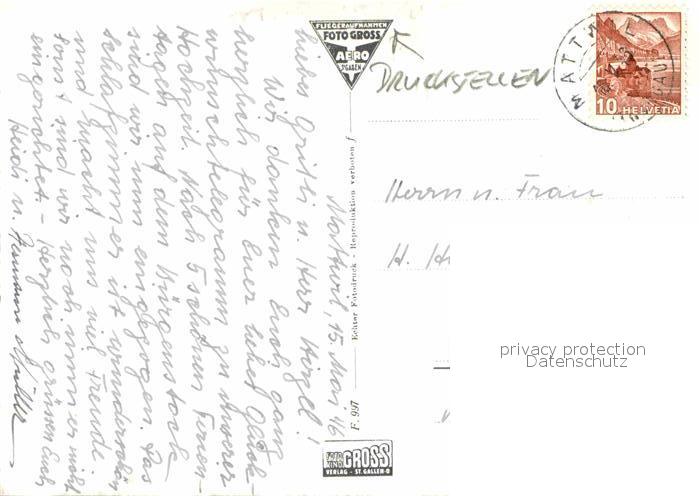 FLIEGERAUFNAHMEN
FOTO GROSS
AERO
ST. GALLEN
DRUCKSTELLEN
MATTWIL
10 HELVETIA
Herrn u. Frau
H. Hi
privacy protection
Datenschutz
Mattwil, 15. Mai 46
Wir danken Euch ganz
herzlich für Euer liebes Glück-
wunschtelegramm zu unserer
Hochzeit. Nach 5 schönen Ferien-
tagen auf dem Bürgenstock
sind wir nun eingezogen. Das
Schlafzimmer ist wunderschön
und macht uns viel Freude
sonst sind wir noch immer nicht
eingerichtet - Herzlich grüssen Euch
Heidi u. Müller
F. 997
Echter Fotodruck - Reproduktion verboten!
FOTO UND GROSS
VERLAG - ST. GALLEN-O